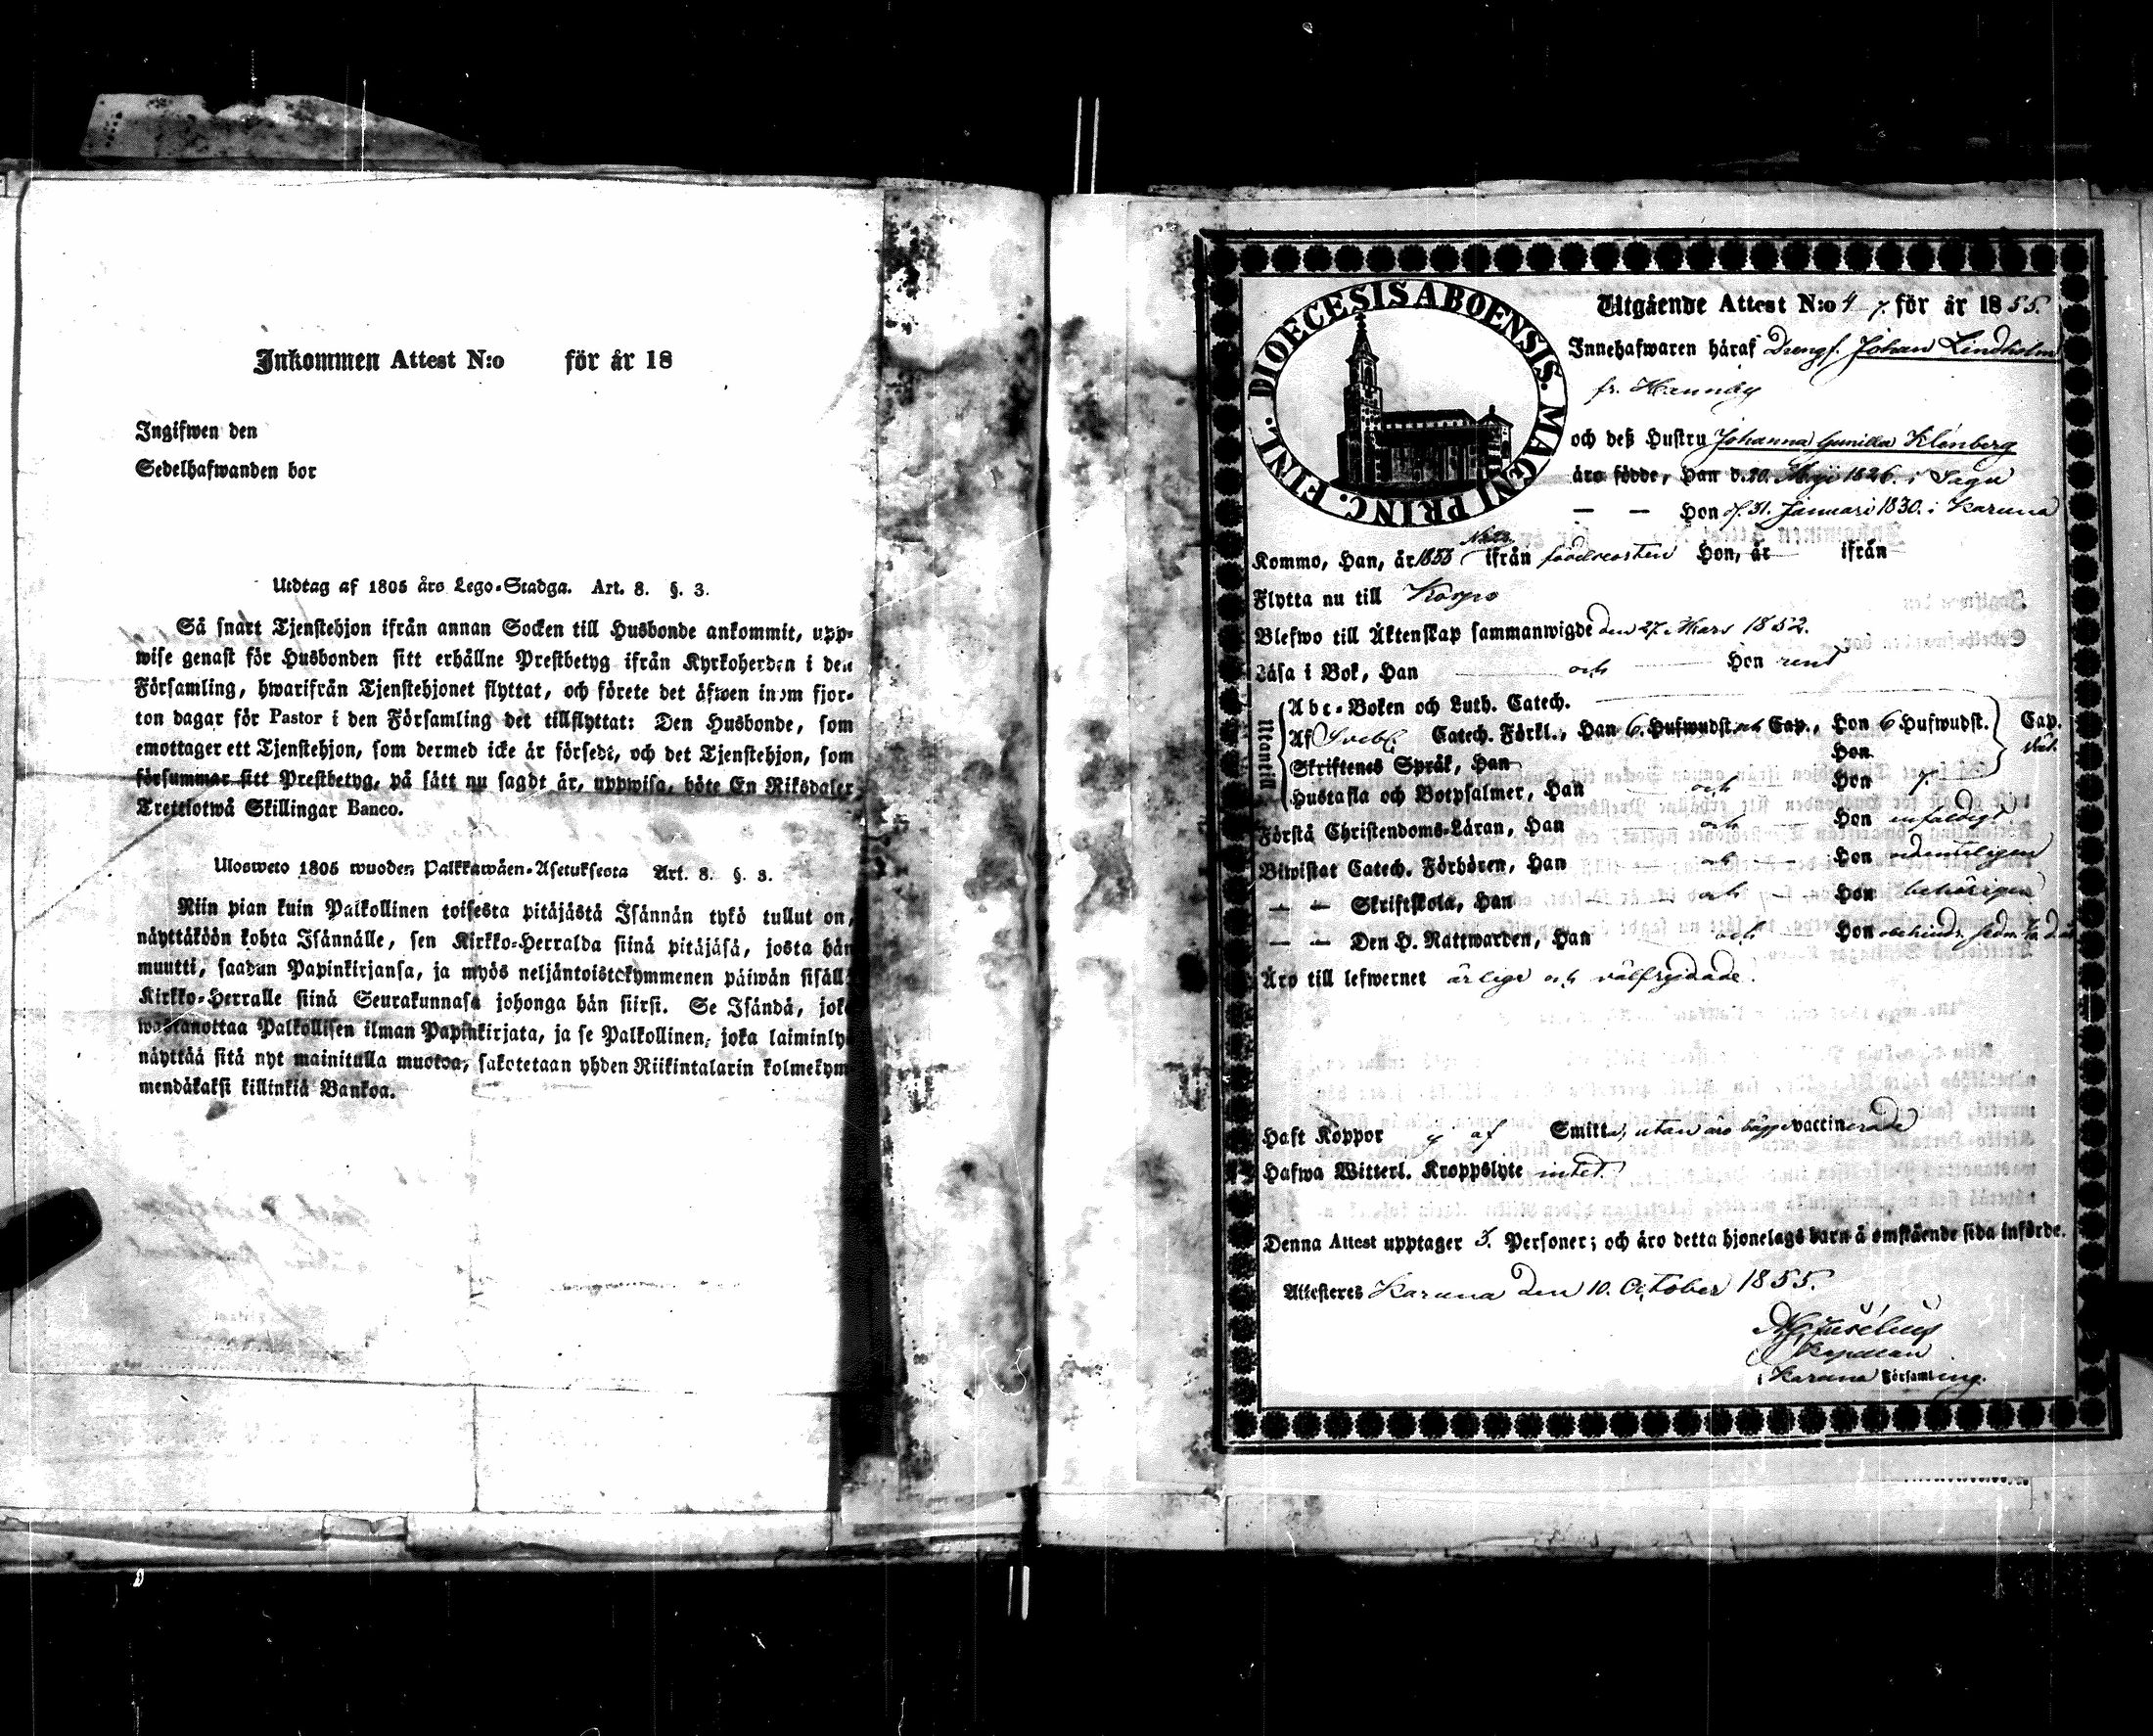 Inkommen Attest N:o för år 18
Ingifwen den
Sedelhafwanden bor
Utdtag af 1805 års Lego-Stadga. Art. 8. §. 3.
Så snart Tjenstehjon ifrån annan Socken till Husbonde ankommit, upp-
wise genast för Husbonden sitt erhållne Prestbetyg ifrån Kyrkoherden i den
Församling, hwarifrån Tjenstehjonet flyttat, och förete det äfwen inom fjor-
ton dagar för Pastor i den Församling det tillflyttat: Den Husbonde, som
emottager ett Tjenstehjon, som dermed icke är försedt, och det Tjenstehjon, som
försummar sitt Prestbetyg, på sätt nu sagdt är, uppwisa, böte En Riksdaler
Trettiotwå Skillingar Banco.
Ulosweto 1805 wuoden Palkkawäen-Asetuksesta Art. 8. §. 3.
Niin pian kuin Palkollinen toisesta pitäjästä Isännän tykö tullut on,
näyttäköön kohta Isännälle, sen Kirkko-Herralda siinä pitäjäsä, josta hän
muutti, saadun Papinkirjansa, ja myös neljäntoistakymmenen päiwän sisäll
Kirkko-Herralle siinä Seurakunnasa johonga hän siirsi. Se Isändä, joka
wastanottaa Palkollisen ilman Papinkirjata, ja se Palkollinen, joka laiminly
näyttää sitä nyt mainitulla muotoa, sakotetaan yhden Riikintalarin kolmekym
mendäkaksi killinkiä Bankoa.
DIOECESIS ABOENSIS. MAGNI PRINC. FINL.
Utgående Attest N:o 47. för år 1855.
Innehafwaren häraf Drengs. Johan Lindholm
fr. Hannäy
och deß Hustru Johanna Gunilla Klenberg
äro födde, Han d. 20. Maji 1826. i Sagu
— — Hon d. 31. Januari 1830. i Karuna
Kommo, Han, år 1853 ifrån födelseorten Hon, år ifrån
Flytta nu till Korpo
Blefwo till Äktenskap sammanwigde den 27. Mars 1852.
Läsa i Bok, Han och Hon rent
Utantill
Abc-Boken och Luth. Catech.
Af Svebil. Catech. Förkl., Han 6. Hufwudst. och Cap., Hon 6 Hufwudst. Cap.
Skriftenes Språk, Han Hon
Hustafla och Botpsalmer, Han och Hon
Förstå Christendoms-Läran, Han och Hon enfaldigt
Biwistat Catech. Förhören, Han och Hon ordenteligen
— — Skriftskola, Han och Hon behörigen
— — Den H. Nattwarden, Han och Hon obehindr.
Äro till lefwernet ärlige och välfrejdade.
Haft Koppor ej af Smitta, utan äro vaccinerade
Hafwa Witterl. Kroppslyte intet.
Denna Attest upptager 3. Personer; och äro detta hjonelags barn å omstående sida införde.
Attesteres Karuna den 10. October 1855.
Kapellan
i Karuna Församling.